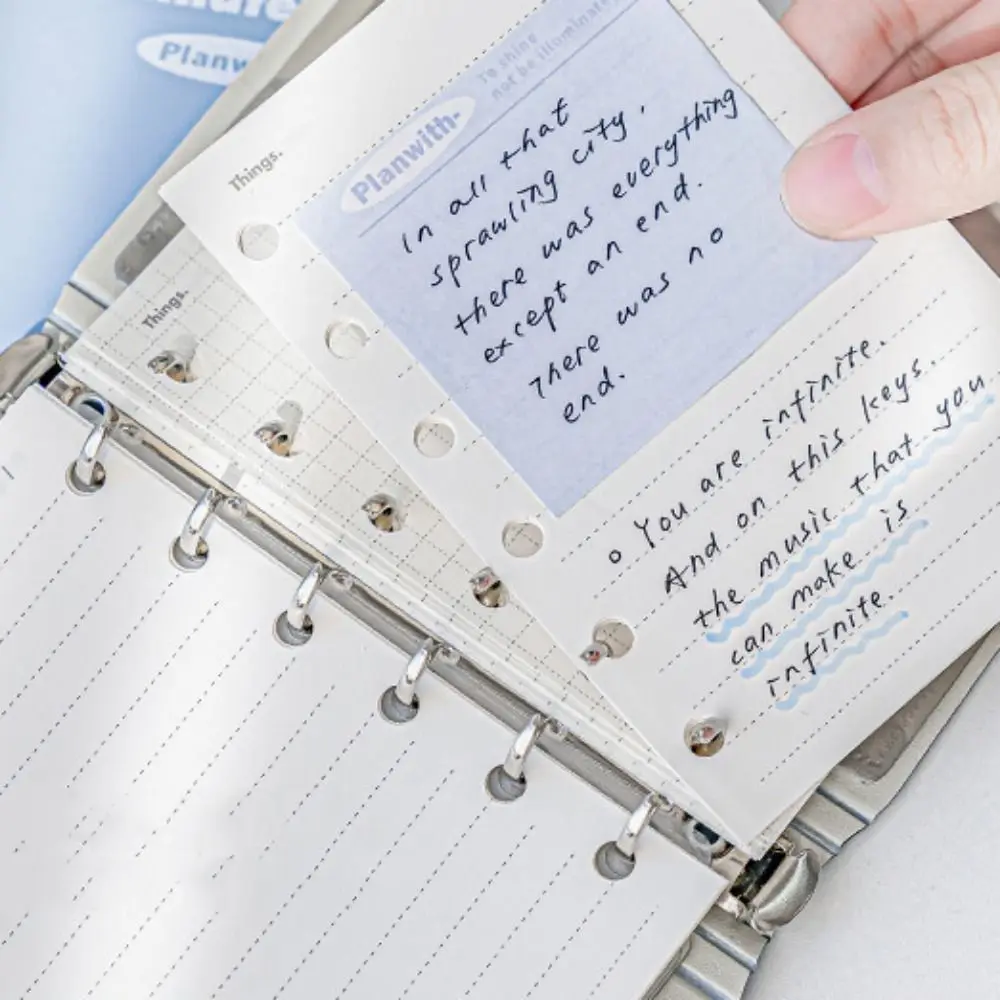 Planw
Things.
Things.
Planwith-
To shine
not be illuminate
In all that
sprawling city,
there was everything
except an end.
There was no
end.
You are infinite.
And on this keys.
the music that you
can make is
infinite.